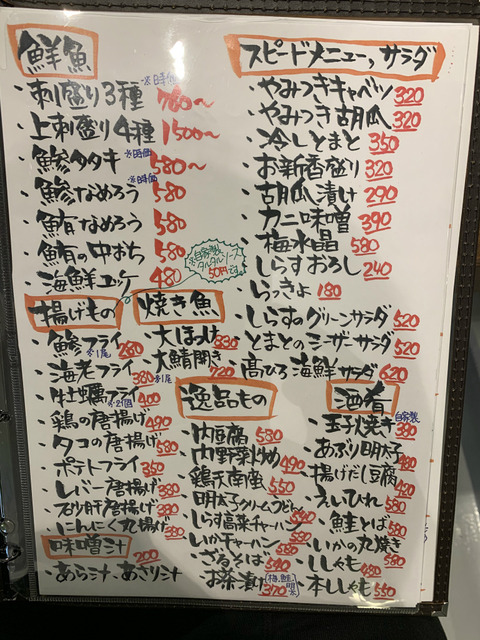 鮮魚
※時価
・刺盛り3種 780〜
・上刺盛り4種 1500〜
・鯵タタキ ※時価 580〜
・鯵なめろう ※時価 580
・鮪なめろう 580
・鮪の中おち 580
・海鮮ユッケ 480
※自家製タルタルソース50円です。
揚げもの
・鯵フライ ※1尾 280
・海老フライ 380 ※1尾
・牡蠣フライ ※2個 400
・鶏の唐揚げ 490
・タコの唐揚げ 580
・ポテトフライ 350
・レバー唐揚げ 380
・砂肝唐揚げ 380
・にんにく丸揚げ 380
味噌汁 200
・あら汁、あさり汁
焼き魚
・大ほっけ 880
・大鯖開き 720
スピードメニュー、サラダ
・やみつきキャベツ 320
・やみつき胡瓜 320
・冷しとまと 350
・お新香盛り 320
・胡瓜一本漬け 290
・カニ味噌 390
・梅水晶 580
・しらすおろし 240
・らっきょ 180
・しらすのグリーンサラダ 520
・とまとのシーザーサラダ 520
・高ひろ海鮮サラダ 620
逸品もの
・肉豆腐 580
・肉野菜炒め 490
・鶏天南蛮 550
・明太子クリームうどん
・しらす高菜チャーハン
・いかチャーハン 580
・ざるそば 540
・お茶漬け 梅、鮭、明太 370
酒肴
・玉子焼き 自家製 380
・あぶり明太子 480
・揚げだし豆腐 420
・えいひれ 580
・鮭とば 580
・いかの丸焼き 580
・ししゃも 480
・本ししゃも 550